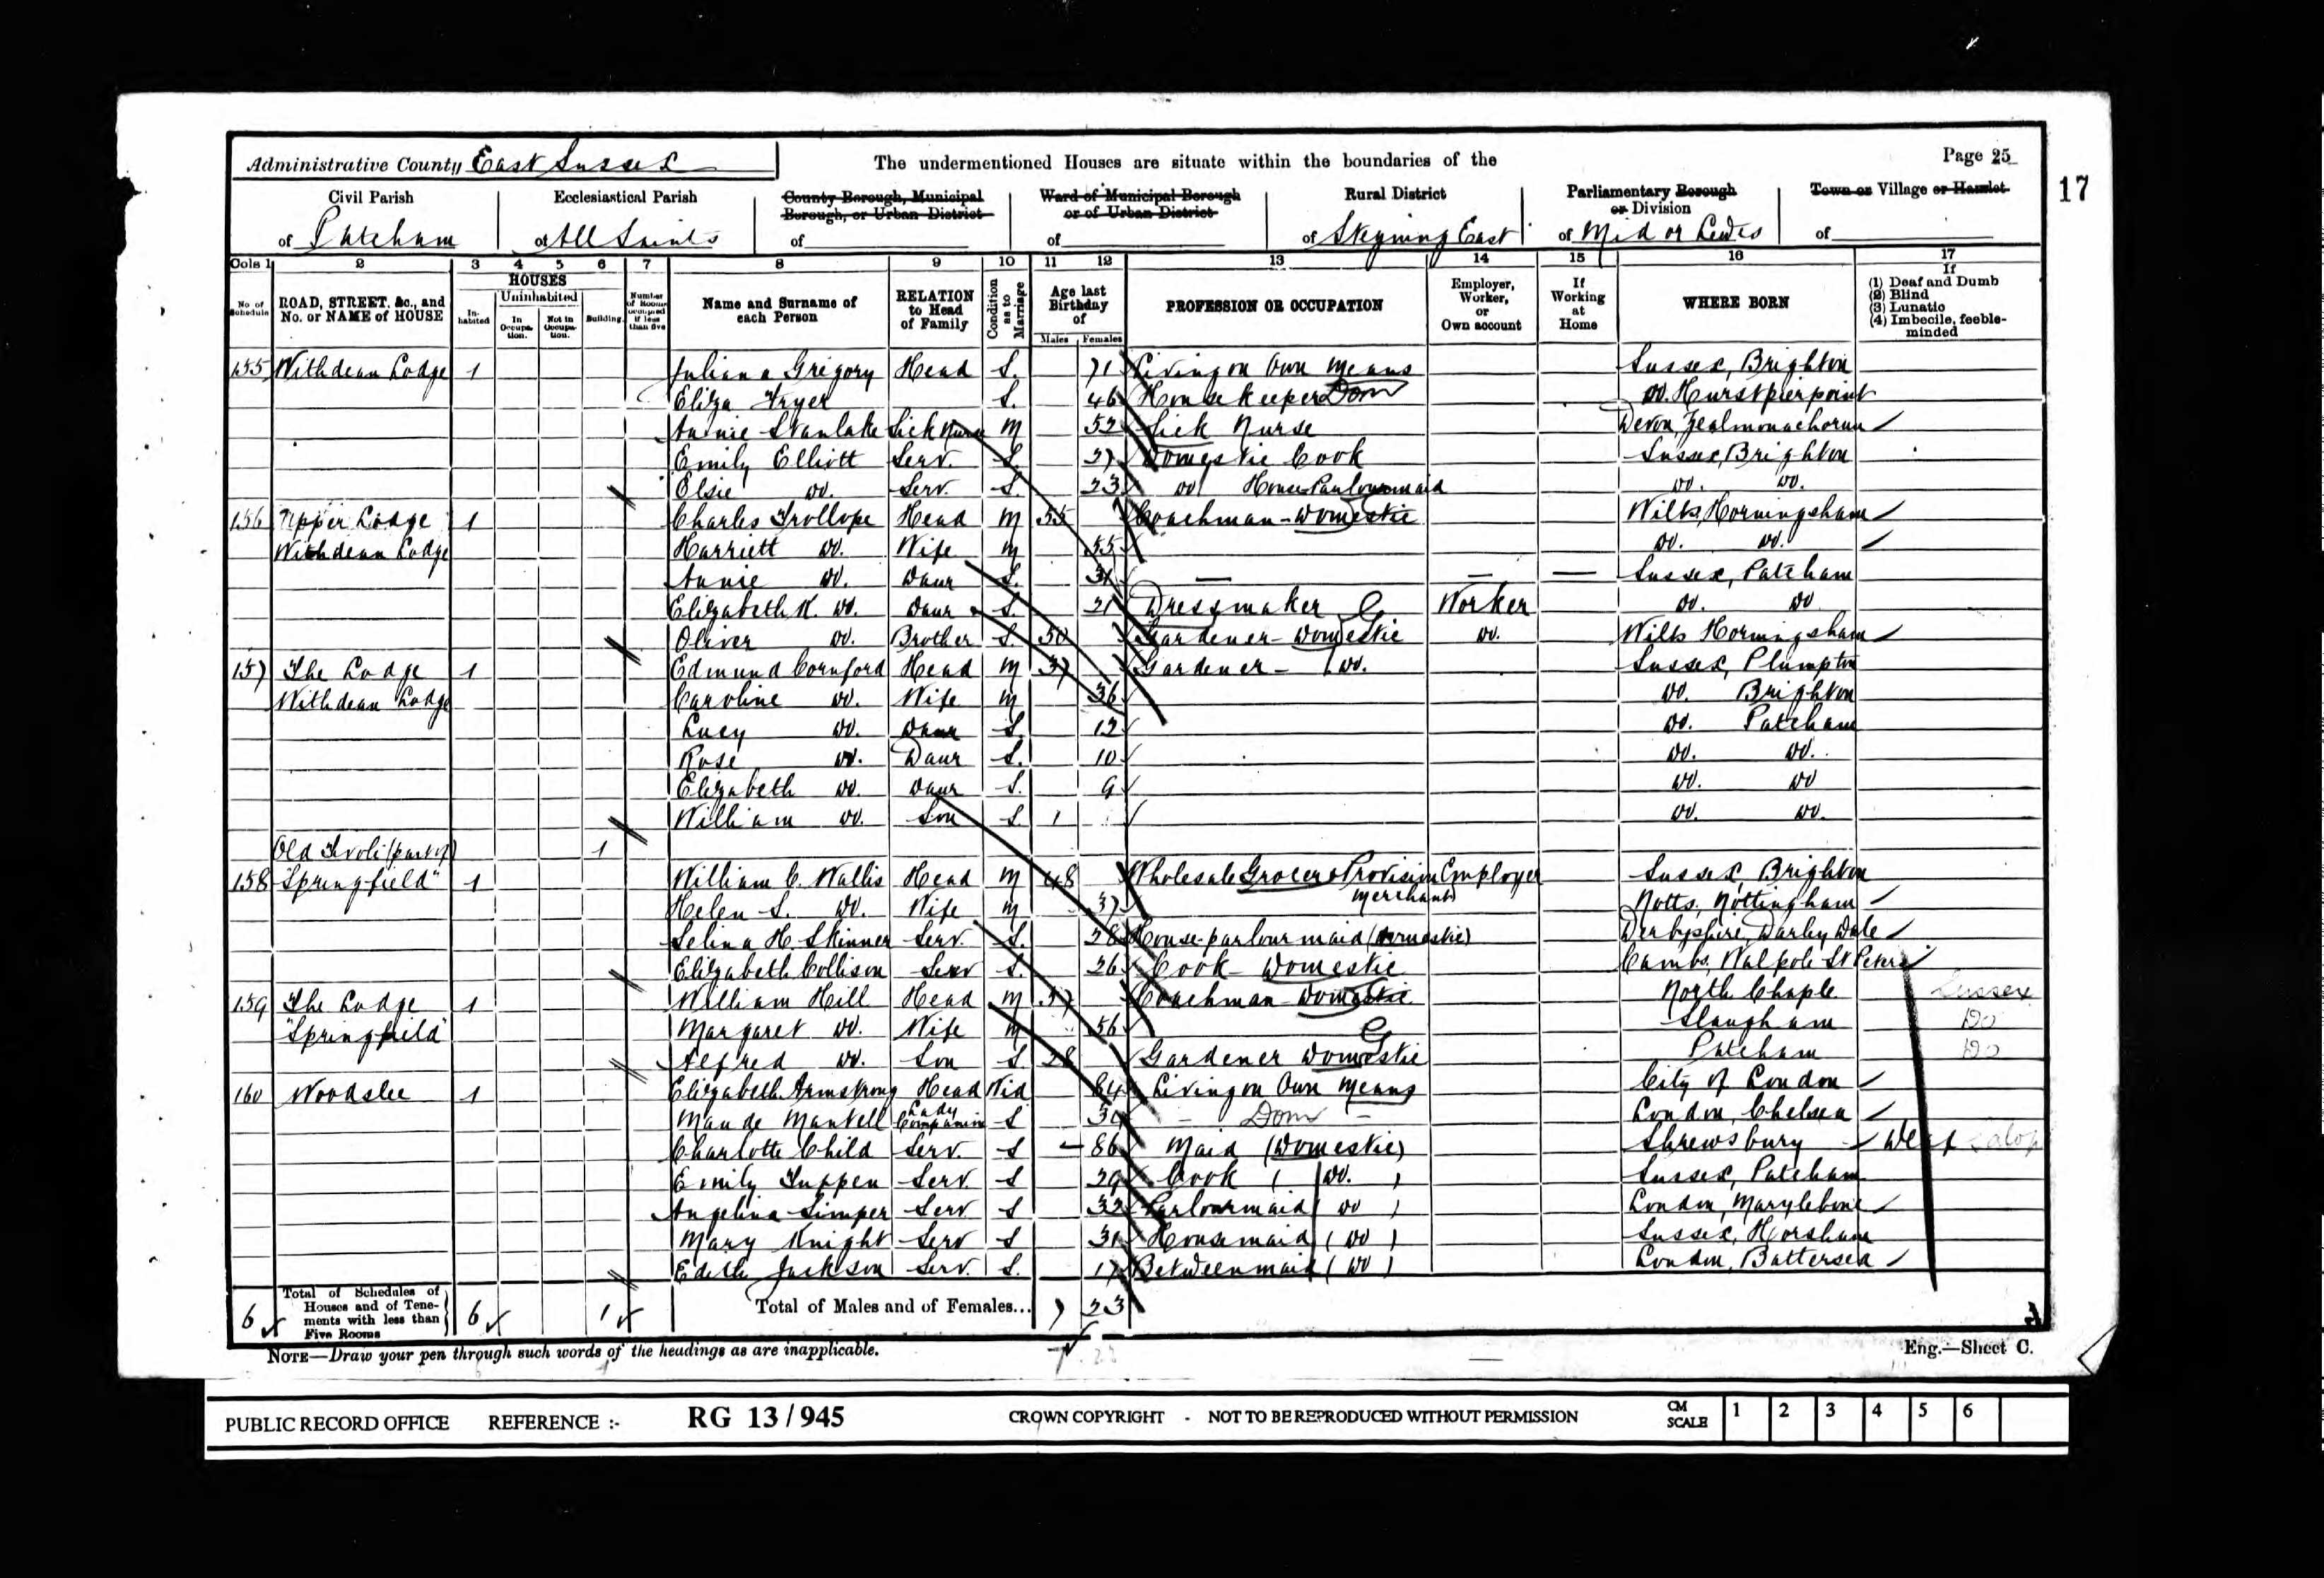 Administrative County East Sussex
The undermentioned Houses are situate within the boundaries of the
Page 25
17
Civil Parish of Patcham
Ecclesiastical Parish of All Saints
County Borough, Municipal Borough, or Urban District of
Ward of Municipal Borough or of Urban District of
Rural District of Steyning East
Parliamentary Borough or Division of Mid or Lewes
Town or Village or Hamlet of
Cols 1 2 3 4 5 6 7 8 9 10 11 12 13 14 15 16 17
No of Schedule
ROAD, STREET, &c., and No. or NAME of HOUSE
HOUSES
Inhabited
Uninhabited
In Occupation.
Not in Occupation.
Building.
Number of Rooms occupied if less than five
Name and Surname of each Person
RELATION to Head of Family
Condition as to Marriage
Age last Birthday of
Males Females
PROFESSION OR OCCUPATION
Employer, Worker, or Own account
If Working at Home
WHERE BORN
If
(1) Deaf and Dumb
(2) Blind
(3) Lunatic
(4) Imbecile, feeble-minded
155 Withdean Lodge 1 Juliana Gregory Head S. 71 Living on Own Means Sussex, Brighton
Eliza Fryer S. 46 Housekeeper Dom do. Hurstpierpoint
Annie Stanlake Sick Nurse M 52 Sick Nurse Devon, Zealmonachorum
Emily Elliott Serv. S. 27 Domestic Cook Sussex, Brighton
Elsie do. Serv. S. 23 do House Parlourmaid do. do.
156 Upper Lodge 1 Charles Trollope Head M 55 Coachman - Domestic Wilts, Horningsham
Withdean Lodge Harriett do. Wife M 55 do. do.
Annie do. Daur S. 31 — — — Sussex, Patcham
Elizabeth K. do. Daur S. 21 Dressmaker Worker do. do
Oliver do. Brother S. 50 Gardener - Domestic do. Wilts Horningsham
157 The Lodge 1 Edmund Cornford Head M 37 Gardener - (do. Sussex, Plumpton
Withdean Lodge Caroline do. Wife M 36 do. Brighton
Lucy do. Daur S. 12 do. Patcham
Rose do. Daur S. 10 do. do.
Elizabeth do. Daur S. 9 do. do
William do. Son S. 1 do. do.
Old Tivoli (part of) 1
158 "Springfield" 1 William C. Wallis Head M 48 Wholesale Grocer & Provision Merchant Employer Sussex, Brighton
Helen S. do. Wife M 37 Notts, Nottingham
Selina H. Skinner Serv. S. 28 House-parlour maid (Domestic) Derbyshire, Darley Dale
Elizabeth Collison Serv S. 26 Cook - Domestic Cambs, Walpole St Peters
159 The Lodge 1 William Hill Head M 57 Coachman - Domestic North Chaple Sussex
"Springfield" Margaret do. Wife M 56 Slaugham Do
Alfred do. Son S. 28 Gardener Domestic Patcham Do
160 Woodslee 1 Elizabeth Armstrong Head Wid 84 Living on Own Means City of London
Maude Mantell Lady Companion S - Dom - London, Chelsea
Charlotte Child Serv. S 86 Maid (Domestic) Shrewsbury Salop
Emily Tuppen Serv. S 29 Cook ( do. ) Sussex, Patcham
Angelina Simper Serv S 32 Parlourmaid ( do ) London, Marylebone
Mary Knight Serv S 31 Housemaid ( do ) Sussex, Horsham
Edith Jackson Serv. S. 17 Betweenmaid ( do ) London, Battersea
6 Total of Schedules of Houses and of Tenements with less than Five Rooms 6 1 Total of Males and of Females... 7 23
NOTE—Draw your pen through such words of the headings as are inapplicable.
Eng.—Sheet C.
PUBLIC RECORD OFFICE REFERENCE :- RG 13/945 CROWN COPYRIGHT - NOT TO BE REPRODUCED WITHOUT PERMISSION CM SCALE 1 2 3 4 5 6